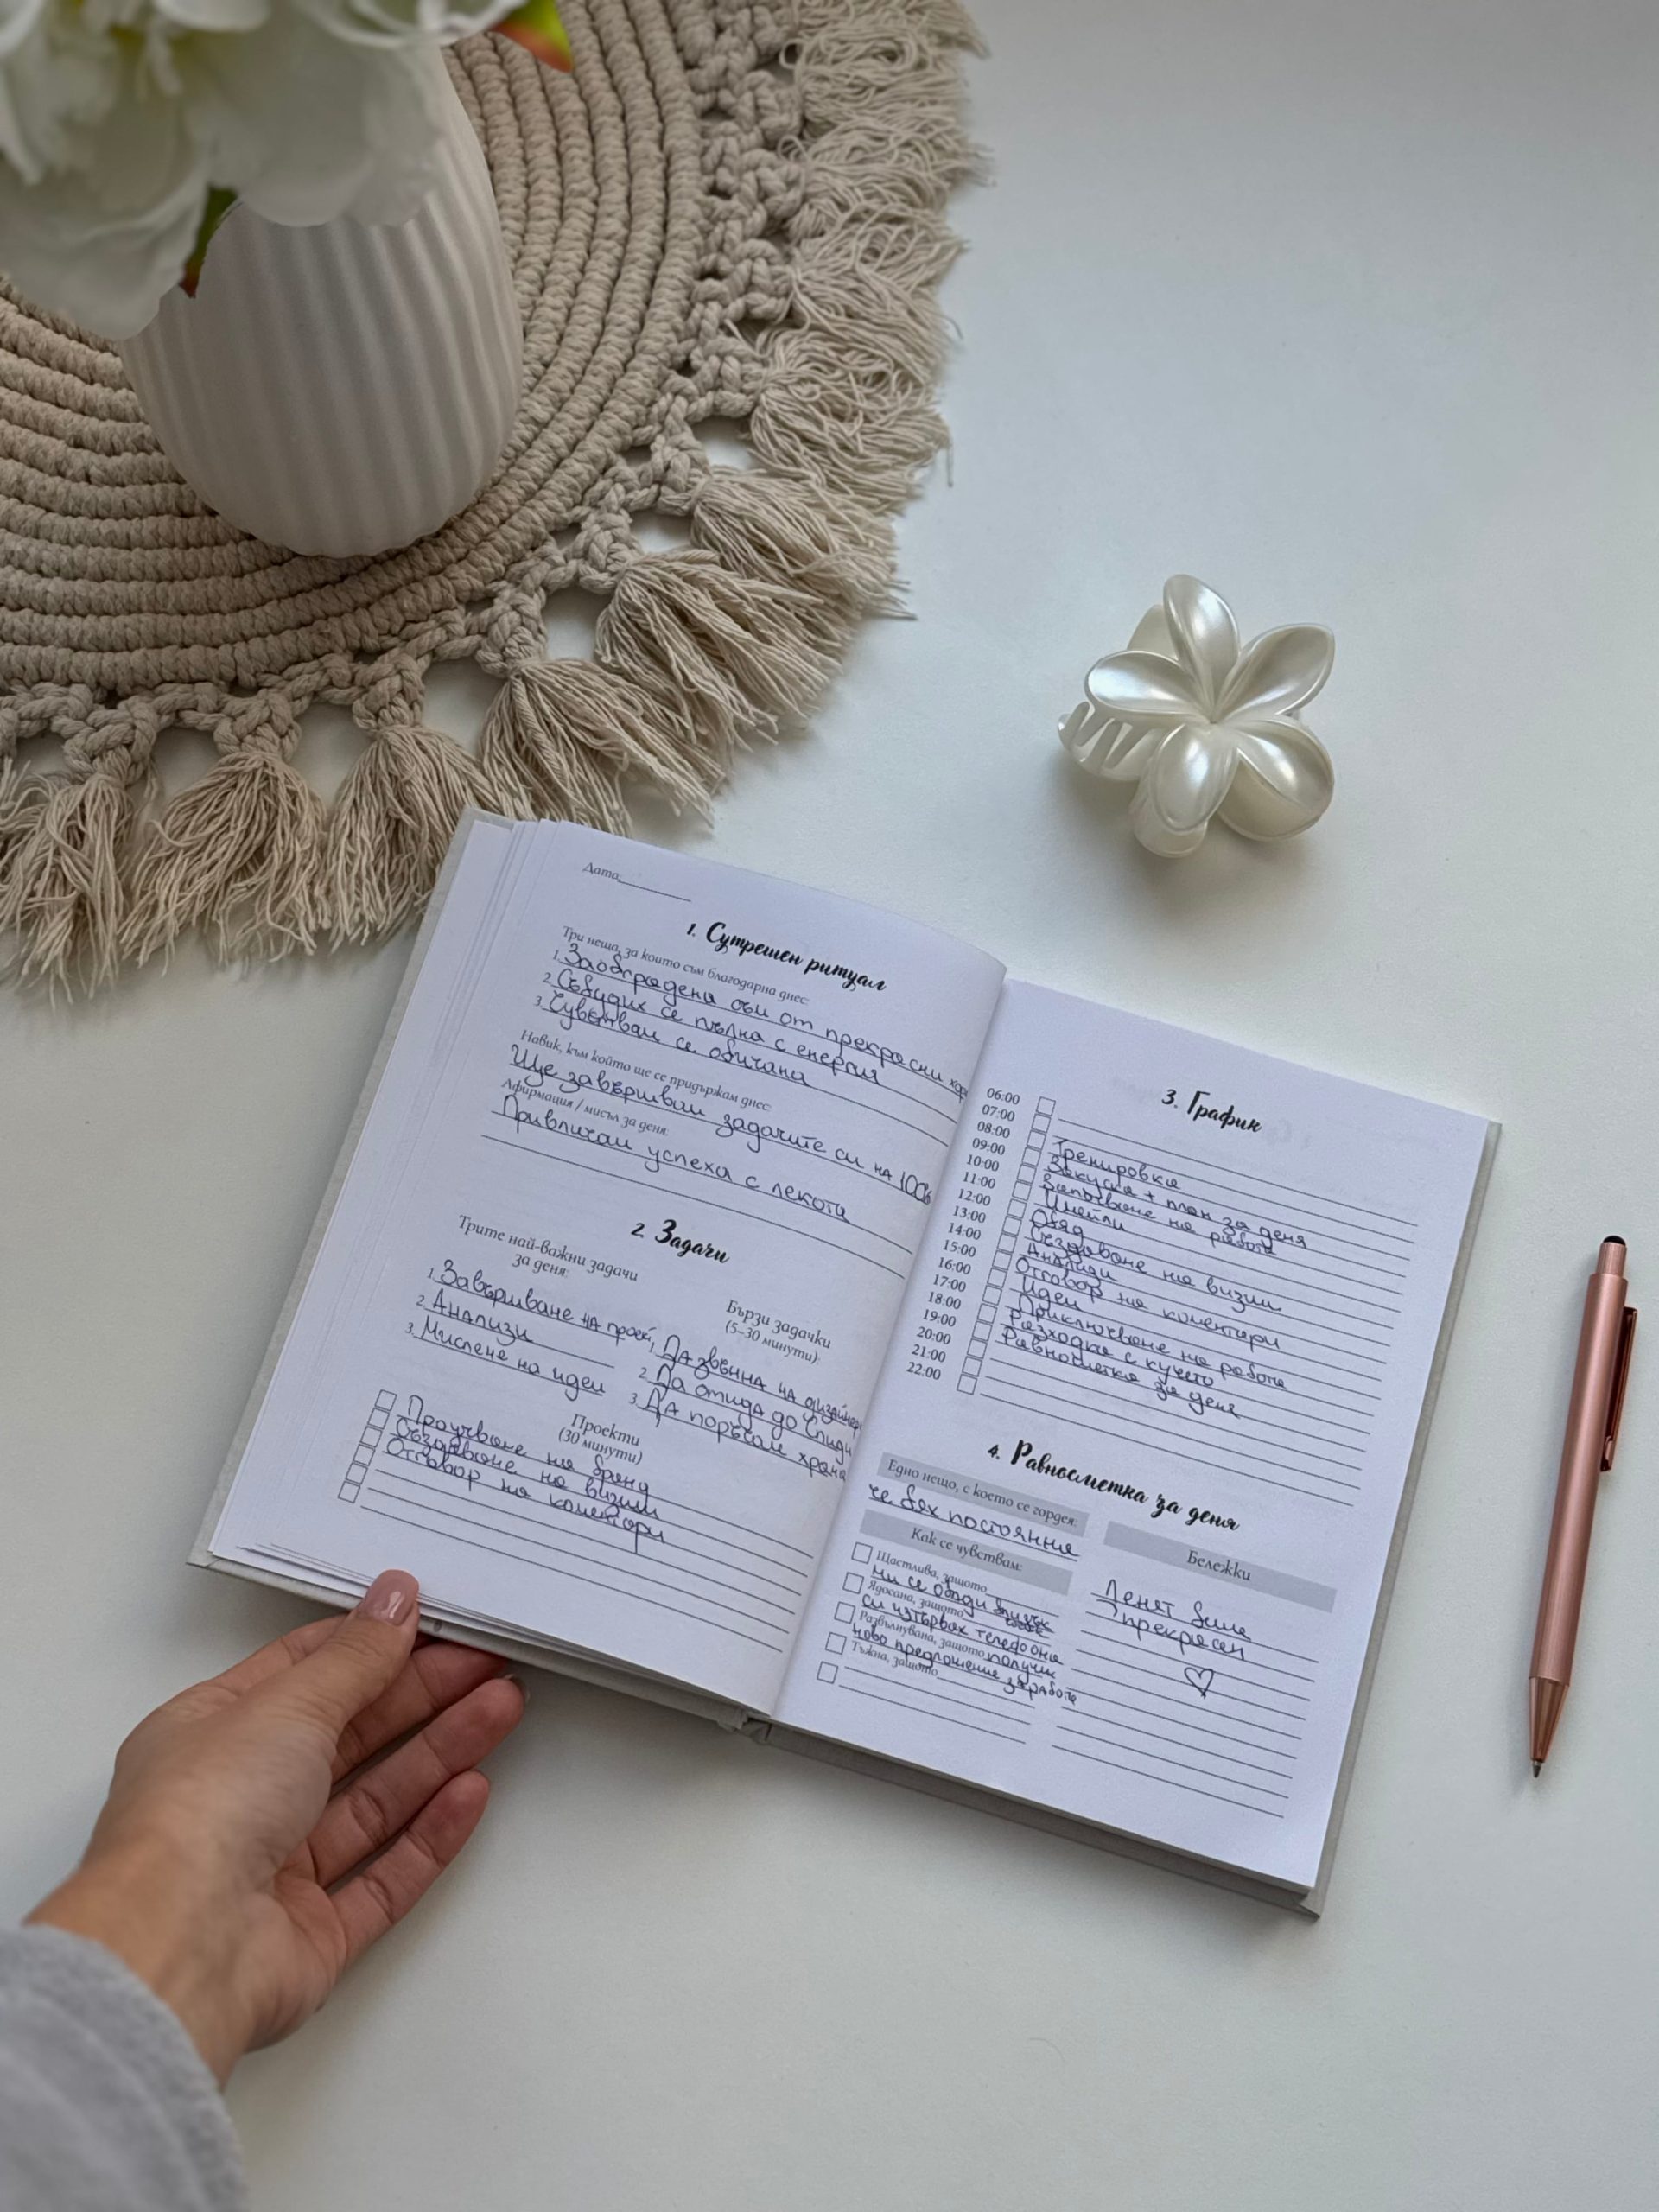 Дата:
1. Сутрешен ритуал
Три неща, за които съм благодарна днес:
1. Заобградена съм от прекрасни хора
2. Събудих се пълна с енергия
3. Чувствам се обичана
Навик, към който ще се придържам днес:
Ще завършвам задачите си на 100%
Афирмация / мисъл за деня:
Привличам успеха с лекота
2. Задачи
Трите най-важни задачи
за деня:
1. Завършване на проект
2. Анализи
3. Мислене на идеи
Бързи задачки
(5-30 минути):
1. Да звънна на дизайнера
2. Да отида до Спиди
3. Да поръчам храна
Проекти
(30 минути)
Проучване на бранд
Създаване на визии
Отговор на коментари
3. График
06:00
07:00
08:00 Тренировка
09:00 Закуска + план за деня
10:00 Започване на работа
11:00 Имейли
12:00 Обяд
13:00 Създаване на визии
14:00 Анализи
15:00 Отговор на коментари
16:00 Идеи
17:00 Приключване на работа
18:00 Разходка с кучето
19:00 Равносметка за деня
20:00
21:00
22:00
4. Равносметка за деня
Едно нещо, с което се гордея:
че бях постоянна
Как се чувствам:
Щастлива, защото
ми се обади близък
Ядосана, защото
си изтървах телефона
Развълнувана, защото получих
ново предложение за работа
Тъжна, защото
Бележки
Денят беше
прекрасен